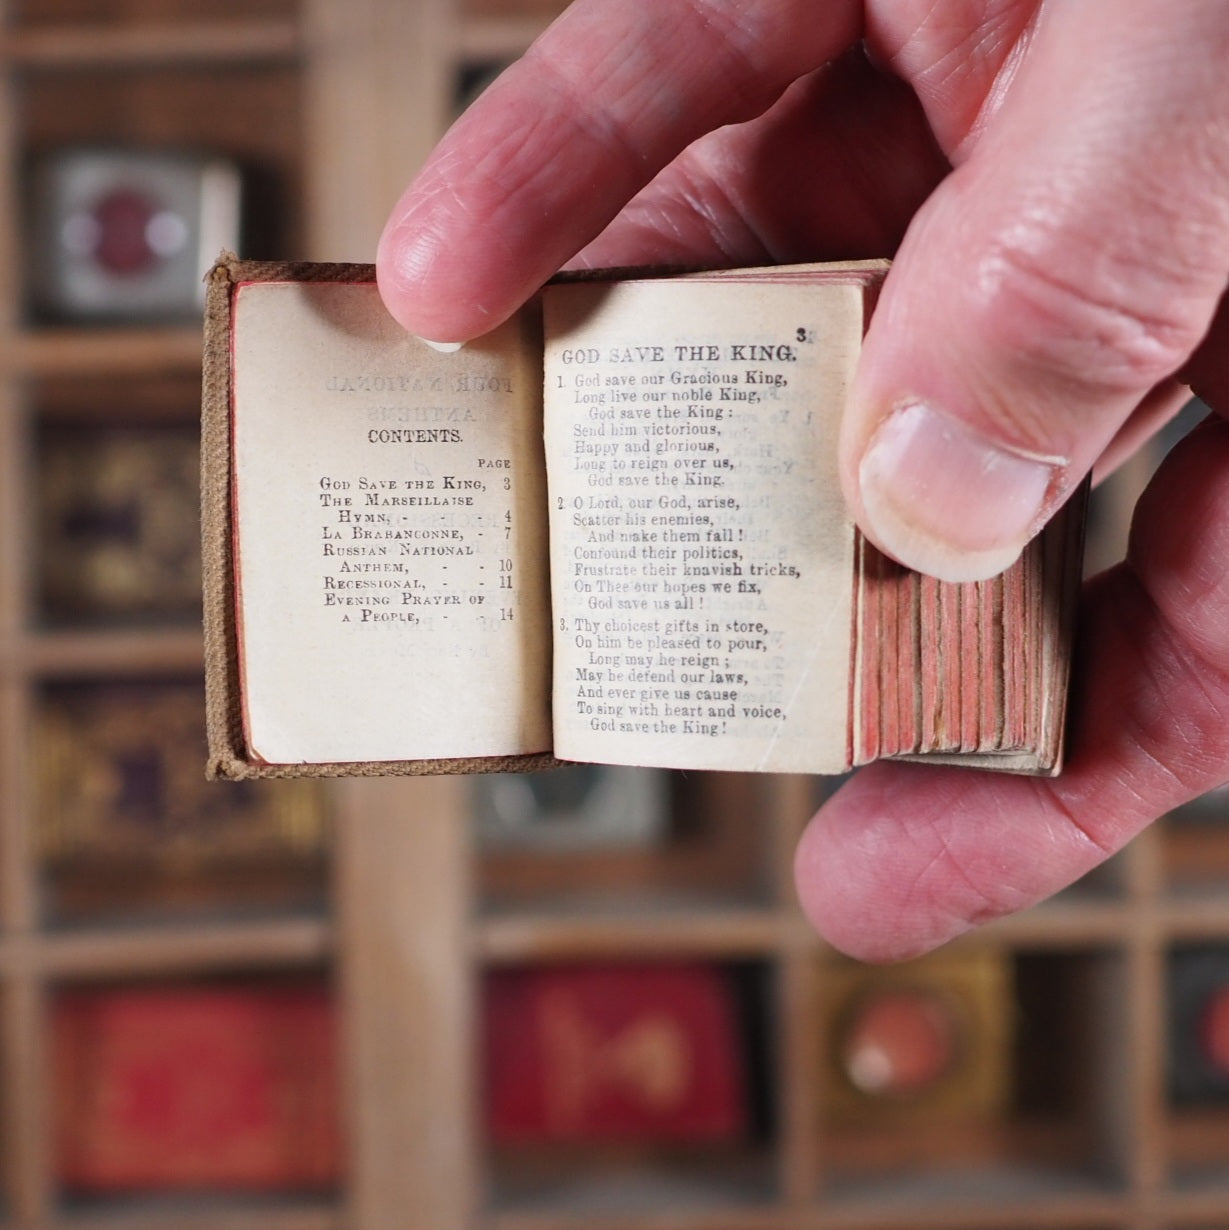 CONTENTS.
PAGE
GOD SAVE THE KING, 3
THE MARSEILLAISE
HYMN, - - - 4
LA BRABANCONNE, - 7
RUSSIAN NATIONAL
ANTHEM, - - 10
RECESSIONAL, - - 11
EVENING PRAYER OF
A PEOPLE, - - 14
3
GOD SAVE THE KING.
1. God save our Gracious King,
Long live our noble King,
God save the King:
Send him victorious,
Happy and glorious,
Long to reign over us,
God save the King.
2. O Lord, our God, arise,
Scatter his enemies,
And make them fall!
Confound their politics,
Frustrate their knavish tricks,
On Thee our hopes we fix,
God save us all!
3. Thy choicest gifts in store,
On him be pleased to pour,
Long may he reign;
May he defend our laws,
And ever give us cause
To sing with heart and voice,
God save the King!